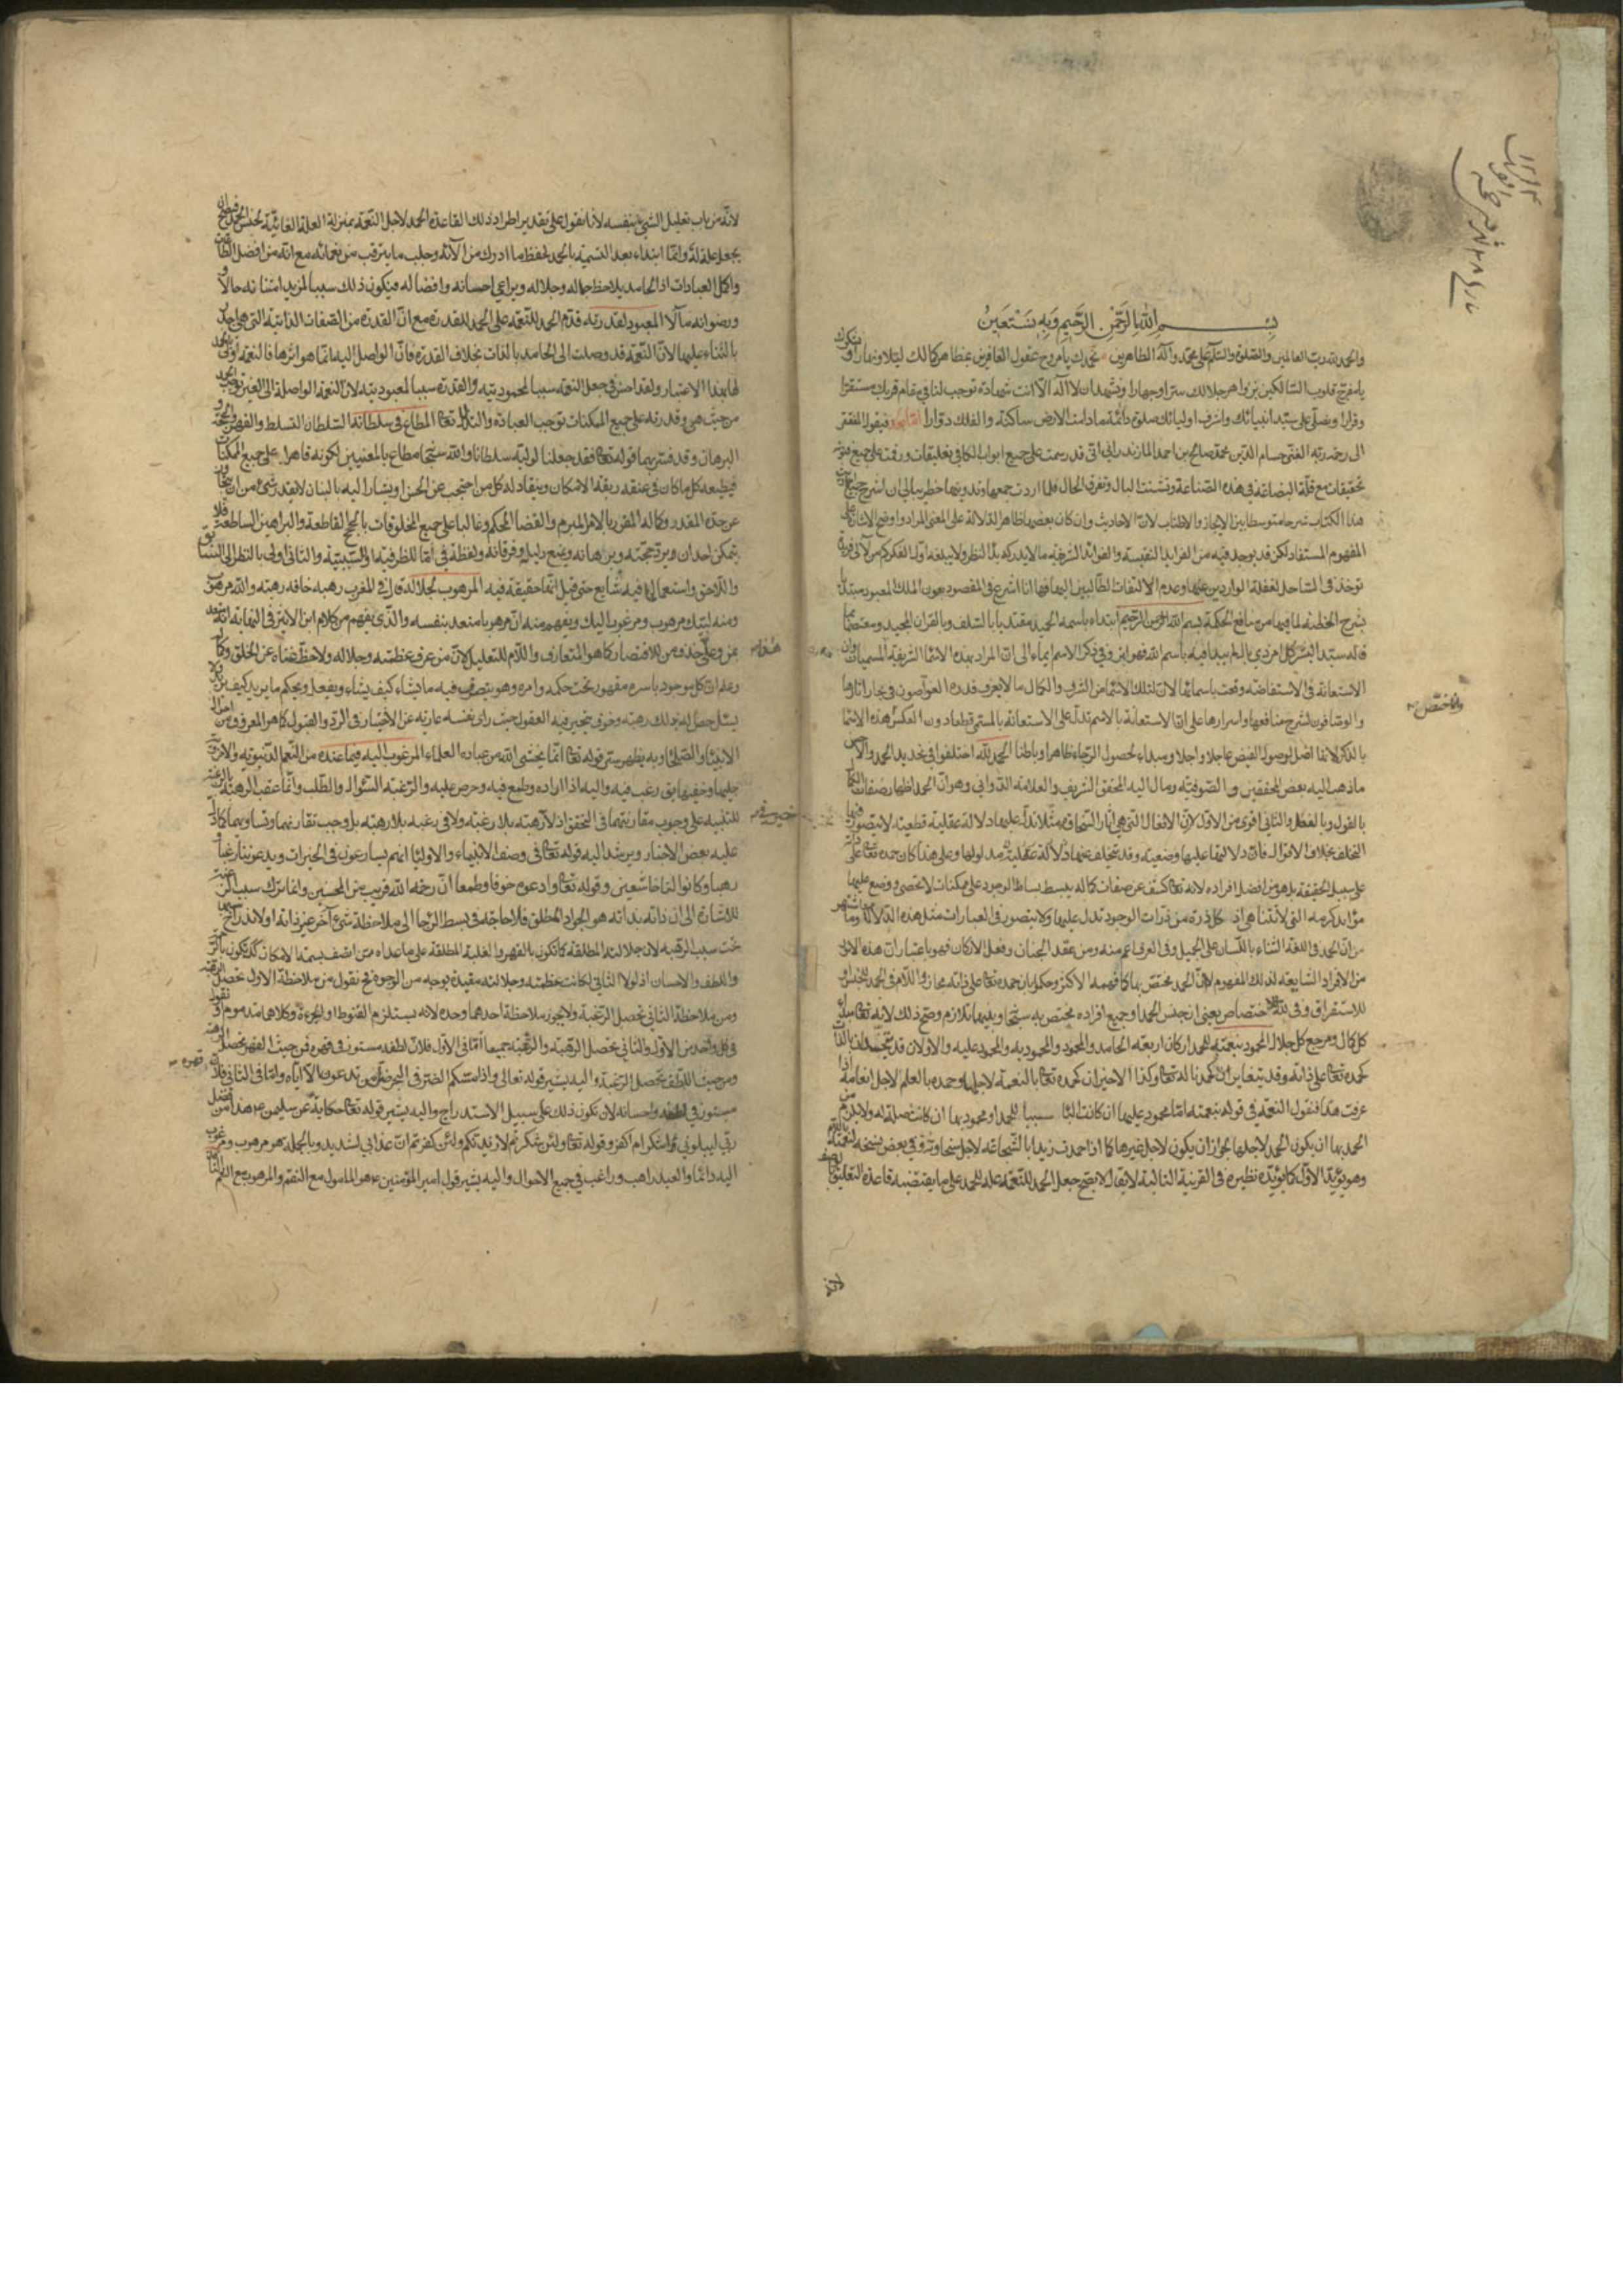 بسم الله الرحمن الرحيم وبه نستعين
والحمد لله رب العالمين والصلوة والسلم على محمد وآله الطاهرين نحمدك يا مروج عقول العارفين بمظاهر كمالك ليلا ونهارا ونشكرك
يا مفرج قلوب السالكين بزواهر جلالك سرا وجهارا ونشهد ان لا اله الا انت شهادة توجب لنا في مقام قربك مستقرا
وقرارا ونصلى على سيد انبيائك واشرف اوليائك صلوة دائمة ما دامت الارض ساكنة والفلك دوارا اما بعد فيقول المفتقر
الى رحمة ربه الغنى حسام الدين محمد صالح بن احمد المازندرانى انى قد رسمت على جميع ابواب الكافى تعليقات ورقمت على جميع
تحقيقات مع قلة البضاعة فى هذه الصناعة وتشتت البال وتفرق الحال فلما اردت جمعها وتدوينها خطر ببالى ان اشرح جميع احاديث
هذا الكتاب شرحا متوسطا بين الايجاز والاطناب لان الاحاديث وان كان بعضها ظاهر الدلالة على المعنى المراد واوضح الانباء على
المفهوم المستفاد لكن قد يوجد فيه من الفرايد النفيسة والفوائد الشريفة ما لا يدركه بدا النظر ولا يبلغه اول الفكر كم من لآلى فريدة
توخذ فى الساحل لغفلة الواردين عنها وعدم الالتفات الطالبين اليها فها انا اشرع فى المقصود بعون الملك المعبود مبتدئا
بشرح الخطبة لما فيها من منافع الحكمة بسم الله الرحمن الرحيم ابتداء باسمه الحميد مقتديا بالسلف وبالقران المجيد ومعتصما بما
قاله سيد البشر كل امر ذى بال لم يبدا فيه باسم الله فهو ابتر وفى ذكر الاسم ايماء الى ان المراد بهذه الاسما الشريفة المسميات وان
الاستعانة فى الاستفاضة وقعت باسمائها لان لتلك الاسماء من الشرف والكمال ما لا يعرف قدره الغواصون فى بحار اثارها
والوصافون لشرح منافعها واسرارها على ان الاستعانة بالاسم تدل على الاستعانة بالمسمى قطعا دون العكس هذه الاسما
بالذكر لانها اصل لوصول الفيض عاجلا واجلا ومبداء لحصول الرجاء ظاهرا وباطنا الحمد لله اختلفوا فى تحديد الحمد والاحسن
ما ذهب اليه بعض المحققين والصوفية ومال اليه المحقق الشريف والعلامة الدوانى وهو ان الحمد اظهار صفات الكمال
بالقول وبالفعل والثانى اقوى من الاول لان الافعال التى هى اثار السخاوة مثلا تدل عليها دلالة عقلية قطعية لا يتصور فيها
التخلف بخلاف الاقوال فان دلالتها عليها وضعية وقد يتخلف عنها مدلولها وعلى هذا كان حمده تعالى على ذاته
على سبيل الحقيقة بل هو من افضل افراده لانه تعالى كشف عن صفات كماله ببسط بساط الوجود على ممكنات لا تحصى ووضع عليها
موائد كرمه التى لا تتناهى اذ كل ذرة من ذرات الوجود تدل عليها ولا يتصور فى العبارات مثل هذه الدلالة وما اشتهر
من ان الحمد فى اللغة الثناء باللسان على الجميل وفى العرف اعم منه ومن عقد الجنان وفعل الاركان فهو باعتبار ان هذه الاثار
من الافراد الشايعة لذلك المفهوم لا ان الحمد مختص بها كما فهمه الاكثر وحكموا بان حمده تعالى على ذاته مجاز واللام فى الحمد للجنس او
للاستغراق وفى لله للاختصاص يعنى ان جنس الحمد او جميع افراده مختص به سبحانه وبينهما تلازم وصح ذلك لانه تعالى مبداء
كل كمال ومرجع كل جلال المحمود بنعمته للحمد اركان اربعة الحامد والمحمود والمحمود به والمحمود عليه والاولان قد يتحدان بالذات
كحمده تعالى على ذاته وقد يتغايران كحمدنا له تعالى وكذا الاخيران كحمده تعالى بالنعمة لاجلها وحمده بالعلم لاجل انعامه اذا
عرفت هذا فنقول النعمة فى قوله بنعمته اما محمود عليها ان كانت الباء سببا للحمد او محمود بها ان كانت صلة له ولا يلزم من
الحمد بها ان يكون الحمد لاجلها بجواز ان يكون لاجل غيرها كما اذا حمدت زيدا بالشجاعة لاجل سخاوته وفى بعض نسخه لنعمته باللام
وهو يؤيد الاول كما يؤيده نظيره فى القرينة التالية لا يقال لا يصح جعل الحمد للنعمة علة للحمد على ما يقتضيه قاعدة التعليق بالوصف
لانه من باب تعليل الشىء بنفسه لانا نقول على تقدير اطراد ذلك القاعدة الحمد لاجل النعمة بمنزلة العلة الغائية لجنس الحمد فيصح ان
يجعل علة له وانما ابتداء بعد التسمية بالحمد لحفظ ما ادرك من آلائه وجلب ما يترقب من نعمائه مع انه من افضل الطاعات
واكمل العبادات اذ الحامد يلاحظ جماله وجلاله ويراعى احسانه وافضاله فيكون ذلك سببا لمزيد امتنانه حالا و
ورضوانه مآلا المعبود لقدرته قدم الحمد للنعمة على الحمد للقدرة مع ان القدرة من الصفات الذاتية التى هى اجدر
بالثناء عليها لان النعمة قد وصلت الى الحامد بالذات بخلاف القدرة فان الواصل اليه انما هو اثرها فالنعمة اولى بالحمد
لها بهذا الاعتبار ولقد احسن فى جعل النعمة سببا لمحموديته والقدرة سببا لمعبوديته لان النعمة الواصلة الى الغير توجب الحمد
من حيث هى وقدرته على جميع الممكنات توجب العبادة والتذلل له تعالى المطاع فى سلطانه السلطان التسلط والقهر والحجة و
البرهان وقد فسر بهما قوله تعالى فقد جعلنا لوليه سلطانا والله سبحانه مطاع بالمعنيين لكونه قاهرا على جميع الممكنات
فيطيعه كل ما كان فى عنقه ربقة الامكان وينقاد له كل من احتجب عن الحس او يشار اليه بالبنان لا يقدر شىء من ان يتجاوز
عن حده المقدر وكماله المقرر بالامر المبرم والقضا المحكم وغالبا على جميع المخلوقات بالحجج القاطعة والبراهين الساطعة فلا
يتمكن احد ان يرد حجته وبرهانه ويمنع دليله وفرقانه ولفظة فى اما للظرفية او للسببية والثانى اولى بالنظر الى السابق
واللاحق واستعمالها فيه شايع حتى قيل انها حقيقة فيه المرهوب لجلاله قال فى المغرب رهبه خافه رهبة والله مرهوب
ومنه لبيك مرهوب ومرغوب اليك ويفهم منه ان مرهوبا متعد بنفسه والذى يفهم من كلام ابن الاثير فى النهاية انه متعد
بمن وعلى حذف من للاقتصار كما هو المتعارف واللام للتعليل لان من عرف عظمته وجلاله ولاحظ غناه عن الخلق وكماله
وعلم ان كل موجود باسره مقهور تحت حكمه وامره وهو يتصرف فيه ما يشاء كيف يشاء ويفعل ويحكم ما يريد كيف يريد ولا
يسئل حصل له بذلك رهبة وخوف يتحير فيه العقول حيث راى نفسه عارية عن الاختيار فى الرد والقبول كما هو المعروف من احوال
الانبياء والصلحاء وبه يظهر سر قوله تعالى انما يخشى الله من عباده العلماء المرغوب اليه فيما عنده من النعم الدنيوية والاخروية
جليها وخفيها يق رغب فيه واليه اذا اراده وطمع فيه وحرص عليه والرغبة السؤال والطلب وانما عقب الرهبة بالرغبة
للتنبيه على وجوب مقارنتهما فى التحقق اذ لا رهبة بلا رغبة ولا فى رغبة بلا رهبة بل وجب تقارنهما وتساويهما كما دل
عليه بعض الاخبار ويرشد اليه قوله تعالى فى وصف الانبياء والاوليا انهم يسارعون فى الخيرات ويدعوننا رغبا و
رهبا وكانوا لنا خاشعين وقوله تعالى وادعوه خوفا وطمعا ان رحمة الله قريب من المحسنين وانما ترك سبب الرغبة
للاشارة الى ان ذاته بذاته هو الجواد المطلق فلا حاجة فى بسط الرجا الى ملاحظة شىء آخر غير ذاته او لاندراج سببها
تحت سبب الرهبة لان جلالته المطلقة كما تكون بالقهر والغلبة المطلقة على ما عداه ممن اتصف بسمة الامكان كك تكون بالرحمة
واللطف والاحسان اذ لولا الثانى لكانت عظمته وجلالته مقيدة بوجه من الوجوه فح نقول من ملاحظة الاول تحصل الرهبة
ومن ملاحظة الثانى تحصل الرغبة ولا يجوز ملاحظة احدهما وحده لانه يستلزم القنوط او الجرءة وكلاهما مذموم او نقول
فى كل واحد من الاول والثانى تحصل الرهبة والرغبة جميعا اما فى الاول فلان لطفه مستور فى قهره فمن حيث القهر تحصل الرهبة
ومن حيث اللطف تحصل الرغبة واليه يشير قوله تعالى واذا مسكم الضر فى البحر ضل من تدعون الا اياه واما فى الثانى فلان
مستور فى لطفه واحسانه لان يكون ذلك على سبيل الاستدراج واليه يشير قوله تعالى حكاية عن سليمن ع هذا من فضل
ربى ليبلونى ءاشكر ام اكفر وقوله تعالى ولئن شكرتم لازيدنكم ولئن كفرتم ان عذابى لشديد وبالجملة هو مرهوب ومرغوب
اليه دائما والعبد راهب وراغب فى جميع الاحوال واليه يشير قول امير المؤمنين ع هو المامول مع النقم والمرهوب مع النعم